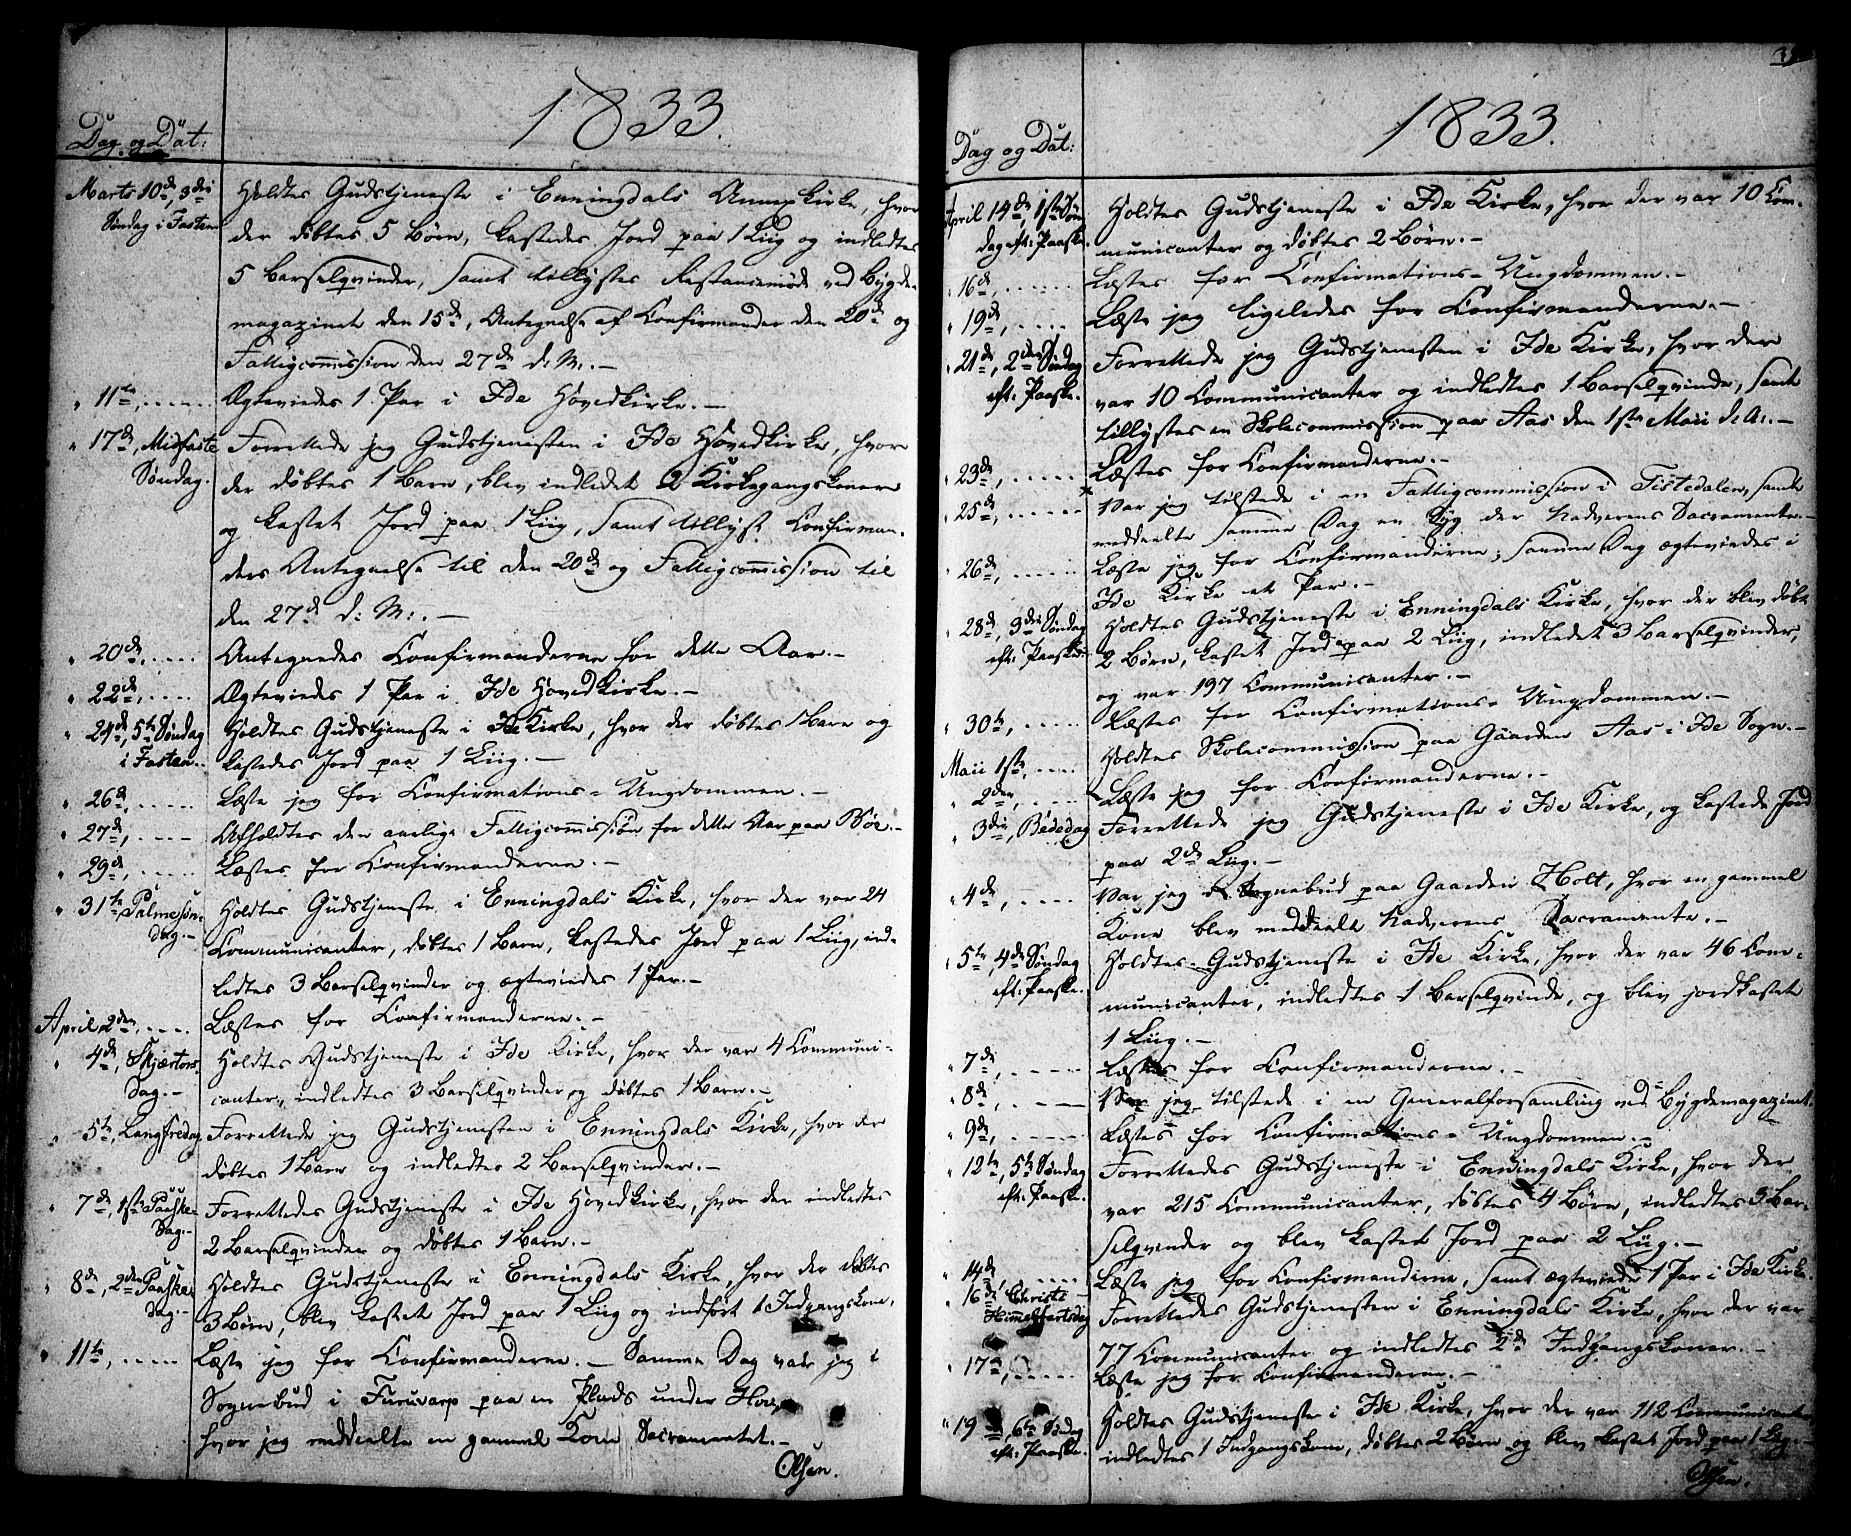 1833.
Dag og Dat:
Marts 10de, 3die
Søndag i Fasten
Holdtes Gudstjeneste i Enningdals Annexkirke, hvor
der döbtes 5 Börn, kastedes Jord paa 1 Liig og indledtes
5 Barselqvinder, samt tillystes Restancemöde ved Bygde-
magazinet den 15de, Antegnelse af Confirmander den 20de og
Fattigcommission den 27de d: M:. —
" 11te, . . . . . Ægteviedes 1 Par i Ide Hovedkirke. —
" 17de, Midfaste
Søndag.
Forrettede jeg Gudstjenesten i Ide Hovedkirke, hvor
der döbtes 1 Barn, blev indledet 2 Kirkegangskoner
og kastet Jord paa 1 Liig, samt tillyst Confirman-
ders Antegnelse til den 20de og Fattigcommission til
den 27de d: M:. —
" 20de, . . . . . Antegnedes Confirmanderne for dette Aar. —
" 22de, . . . . . Ægteviedes 1 Par i Ide Hovedkirke. —
" 24de, 5te Søndag
i Fasten.
Holdtes Gudstjeneste i Ide Kirke, hvor der döbtes 1 Barn og
kastedes Jord paa 1 Liig. —
" 26de, . . . . . Læste jeg for Confirmations-Ungdommen. —
" 27de, . . . . . Afholdtes den aarlige Fattigcommission for dette Aar paa Böe. —
" 29de, . . . . . Læstes for Confirmanderne. —
" 31te Palmesøn-
dag. —
Holdtes Gudstjeneste i Enningdals Kirke, hvor der var 24
Communicanter, döbtes 1 Barn, kastedes Jord paa 1 Liig, ind-
ledtes 3 Barselqvinder og ægteviedes 1 Par. —
April, 2den, . . . . Læstes for Confirmanderne. —
" 4de, Skjærtors-
Dag. —
Holdtes Gudstjeneste i Ide Kirke, hvor der var 4 Communi-
canter, indledtes 3 Barselqvinder og döbtes 1 Barn. —
" 5te, Langfredag
Forrettede jeg Gudstjenesten i Enningdals Kirke, hvor der
döbtes 1 Barn og indledtes 2 Barselqvinder. —
" 7de, 1ste Paaske-
Dag. —
Forrettedes Gudstjeneste i Ide Hovedkirke, hvor der indledtes
2 Barselqvinder og döbtes 1 Barn. —
" 8de, 2den Paaske-
dag. —
Holdtes Gudstjeneste i Enningdals Kirke, hvor der döbtes
3 Börn, blev kastet Jord paa 1 Liig og indfört 1 Indgangskone.
" 11te, . . . . . Læste jeg for Confirmanderne. — Samme Dag var jeg i
Sognebud i paa en Plads under
hvor jeg meddeelte en gammel Kone Sacramentet. —
Olsen.
1833.
Dag og Dat:
April 14de, 1ste Søn-
dag eft: Paaske.
Holdtes Gudstjeneste i Ide Kirke, hvor der var 10 Com-
municanter og döbtes 2 Börn. —
" 16de, . . . . . Læstes for Confirmations-Ungdommen. —
" 19de, . . . . . Læste jeg ligeledes for Confirmanderne. —
" 21de, 2den Søndag
eft: Paaske.
Forrettede jeg Gudstjenesten i Ide Kirke, hvor der
var 10 Communicanter og indledtes 1 Barselqvinde, samt
tillystes en Skolecommission paa Aas den 1ste Maii d. A:. —
" 23de, . . . . . Læstes for Confirmanderne. —
" 25de, . . . . . Var jeg tilstede i en Fattigcommission i Tistedalen, samt
meddeelte samme Dag en Syg der Nadverens Sacramente. —
" 26de, . . . . . Læste jeg for Confirmanderne; samme Dag ægteviedes i
Ide Kirke et Par. —
" 28de, 3die Søndag
eft: Paaske.
Holdtes Gudstjeneste i Enningdals Kirke, hvor der blev döbt
2 Börn, kastet Jord paa 2 Liig, indledet 3 Barselqvinder,
og var 197 Communicanter. —
" 30te, . . . . . Læstes for Confirmations-Ungdommen. —
Maii 1ste, . . . . Holdtes Skolecommission paa Gaarden Aas i Ide Sogn. —
" 2den, . . . . . Læste jeg for Confirmanderne. —
" 3die, Bededag
Forrettede jeg Gudstjeneste i Ide Kirke, og kastede Jord
paa 2de Liig. —
" 4de, . . . . . Var jeg i Sognebud paa Gaarden Holt, hvor en gammel
Kone blev meddeelt Nadverens Sacramente. —
" 5te, 4de Søndag
eft: Paaske.
Holdtes Gudstjeneste i Ide Kirke, hvor der var 46 Com-
municanter, indledtes 1 Barselqvinde, og blev jordkastet
1 Liig. —
" 7de, . . . . . Læstes for Confirmanderne. —
" 8de, . . . . . Var jeg tilstede i en Generalforsamling ved Bygdemagazinet.
" 9de, . . . . . Læstes for Confirmations-Ungdommen. —
" 12te, 5te Søndag
eft: Paaske.
Forrettedes Gudstjeneste i Enningdals Kirke, hvor der
var 215 Communicanter, döbtes 4 Börn, indledtes 3 Bar-
selqvinder og blev kastet Jord paa 2 Liig. —
" 14de . . . . . Læste jeg for Confirmanderne, samt ægteviede 1 Par i Ide Kirke.
" 16de, Christi
Himmelfartsdag
Forrettedes Gudstjenesten i Enningdals Kirke, hvor der var
77 Communicanter og indledtes 2de Indgangskoner. —
" 17de, . . . . . Læste jeg for Confirmanderne. —
" 19 6te Søndag
eft: Paaske.
Holdtes Gudstjeneste i Ide Kirke, hvor der var 112 Communicanter
indledtes 1 Indgangskone, döbtes 2 Börn og blev kastet Jord paa 1 Liig. —
Olsen.